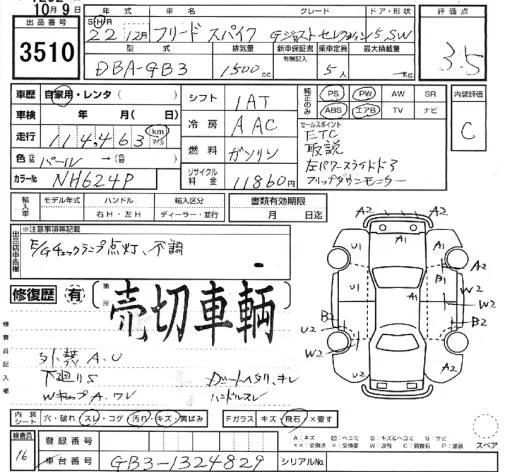 10月9日
出品番号
3510
年式 グレード ドア・形状
S H R
22 年 12月 フリード スパイク Gジャストセレクション 5 SW
型式 排気量 新車保証書 有無記入 乗車定員 最大積載量
DBA-GB3 1500cc 5人
評価点
3.5
車歴 自家用・レンタ( )
車検 年 月( 日)
走行 114,463 km マイル
色 パール →( )
カラーNo NH624P
シフト 1AT
冷房 AAC
燃料 ガソリン
リサイクル料金 11860円
純正のみ
PS PW AW SR
ABS エアB TV ナビ
セールスポイント
ETC
取説
左パワースライドドア
フリップダウンモニター
内装評価
C
輸入車 モデル年式 ハンドル 輸入区分
右H・左H ディーラー・並行
書類有効期限
月 日迄
出品店申告欄
※注意事項等記載
E/Gチェックランプ点灯、不調
修復歴 有 箇所
売切車輌
検査員記入欄
外装A.U
下廻りS
WキップA.ワレ
シートヘタリ、キレ
ハンドルスレ
A2 A2 A1 U1 A1 A2
U1 B1 W2 W2
U2 B2
W2 A2 A2 W2
内装シート 穴・破れ・スレ・コゲ・汚れ・キズ・黄ばみ Fガラス キズ・飛石・×要す
スペア
検査員
16
登録番号
車台番号 GB3-1324829 シリアルNo.